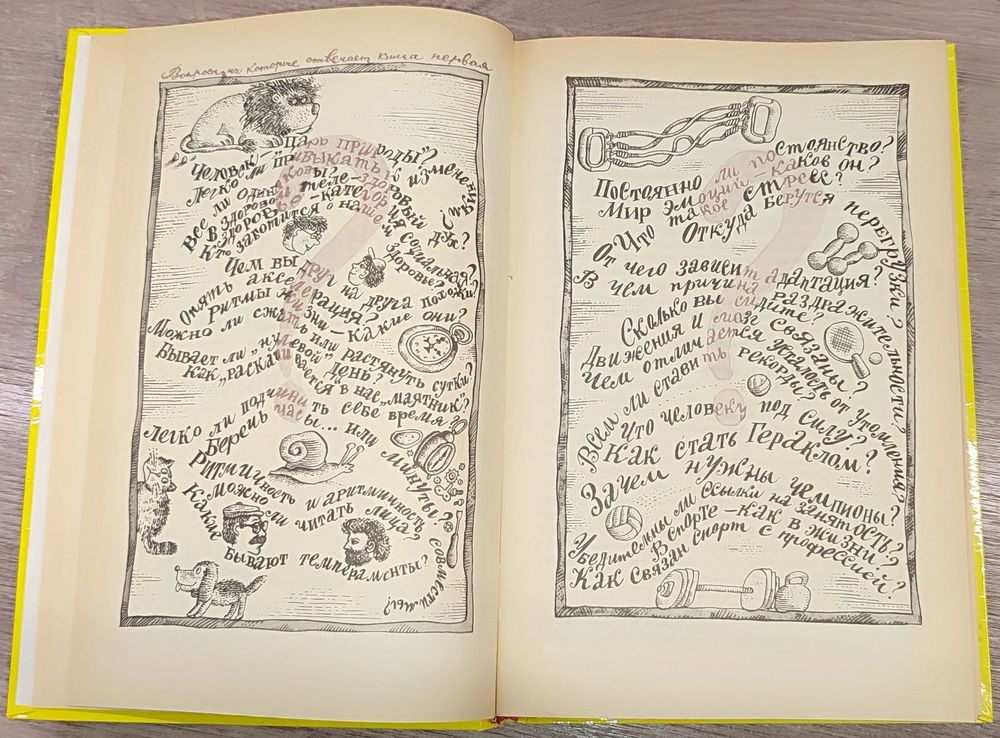 Вопросы, на которые отвечает книга первая
Человек — „царь природы"?
Легко ли привыкать к изменениям?
Все ли одинаковы?
В здоровом теле — здоровый дух?
Здоровье — категория социальная?
Кто заботится о нашем здоровье?
Чем вы друг на друга похожи?
Опять акселерация?
Ритмы жизни — какие они?
Можно ли сжать или растянуть сутки?
Бывает ли „нулевой" день?
Как „раскачивается" в нас „маятник"?
Легко ли подчинить себе время?
Беречь часы... или минуты?
Ритмичность и аритмичность совместимы?
Можно ли читать лица?
Какие бывают темпераменты?
Постоянно ли постоянство?
Мир эмоций — каков он?
Что такое стресс?
Откуда берутся перегрузки?
От чего зависит адаптация?
В чем причина раздражительности?
Сколько вы сидите?
Движения и глаз связаны?
Чем отличается усталость от утомления?
Всем ли ставить рекорды?
Что человеку под силу?
Как стать Гераклом?
Зачем нужны чемпионы?
Убедительны ли ссылки на занятость?
В спорте — как в жизни?
Как связан спорт с профессией?